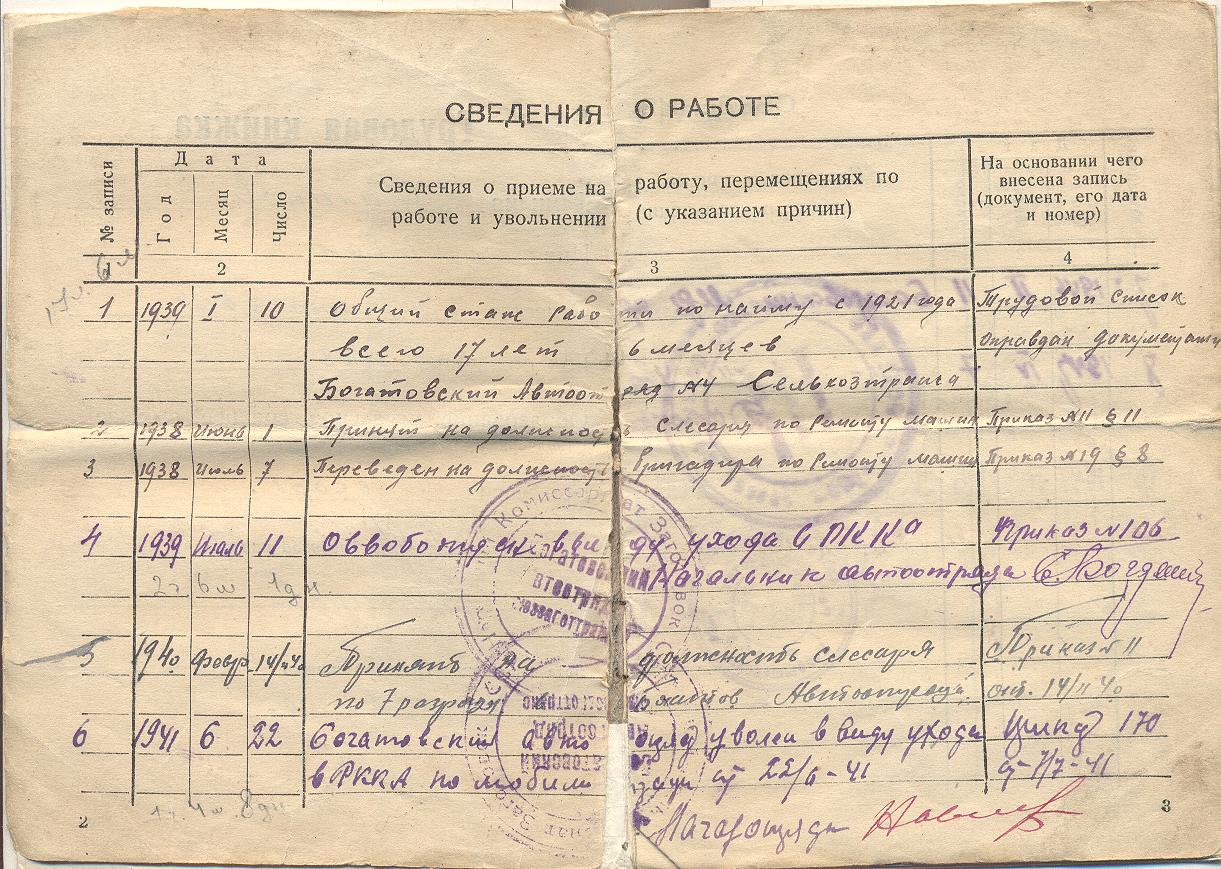 СВЕДЕНИЯ О РАБОТЕ
№ записи
Дата
Год
Месяц
Число
Сведения о приеме на работу, перемещениях по
работе и увольнении (с указанием причин)
На основании чего
внесена запись
(документ, его дата
и номер)
1 2 3 4
17 л. 6 м
1 1939 I 10 Общий стаж работы по найму с 1921 года Трудовой список
всего 17 лет 6 месяцев оправдан документами
Богатовский Автоотряд №4 Сельхозтранса
2 1938 Июнь 1 Принят на должность слесаря по ремонту машин Приказ №11 § 11
3 1938 Июль 7 Переведен на должность Бригадира по ремонту машин Приказ №19 § 8
4 1939 Июль 11 Освобожден ввиду ухода в РККа Приказ №106
2 г 6 м 1 дн. Начальник автоотряда
5 1940 февр 14/II 40 Принят на должность слесаря Приказ № 11
по 7 разряду Автоотряда. от 14/II 40
6 1941 6 22 Богатовский автоотряд уволен ввиду ухода 170
в РККА по мобилизации от 22/6-41 от 7/7-41
1 г. 4 м. 8 дн
Комиссариат Заготовок
Богатовский
автоотряд
Союззаготтранс
2
3